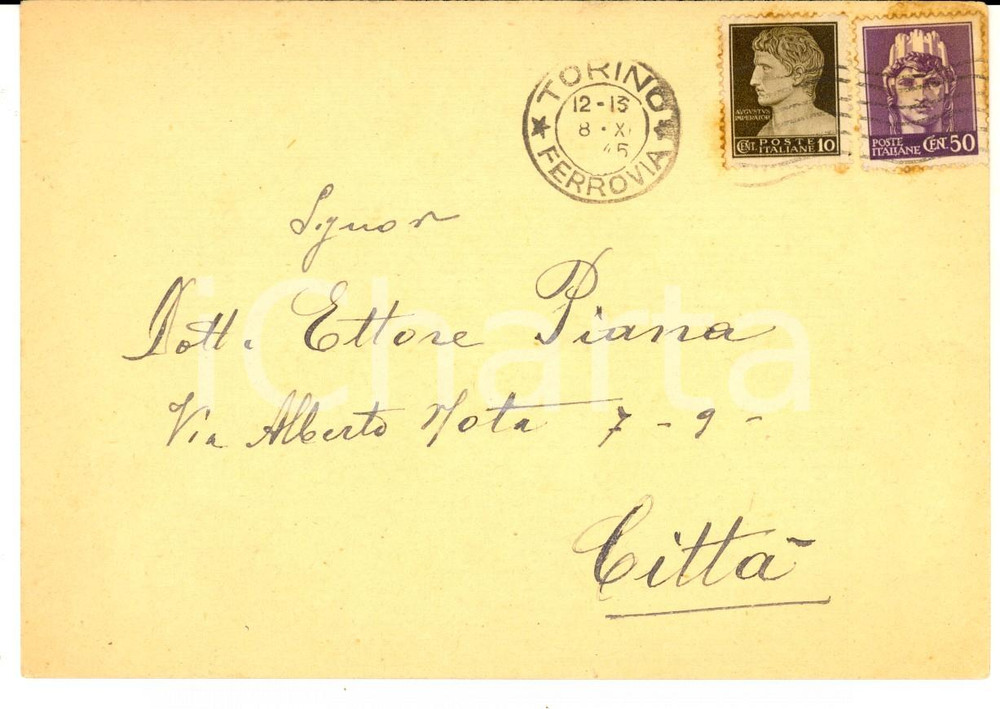 TORINO
12-13
8 · XI
45
FERROVIA
AUGUSTUS
IMPERATOR
CENT. POSTE ITALIANE 10
POSTE
ITALIANE CENT. 50
Signor
Dott. Ettore Piana
Via Alberto Nota 7 - 9 -
Città
iCharta